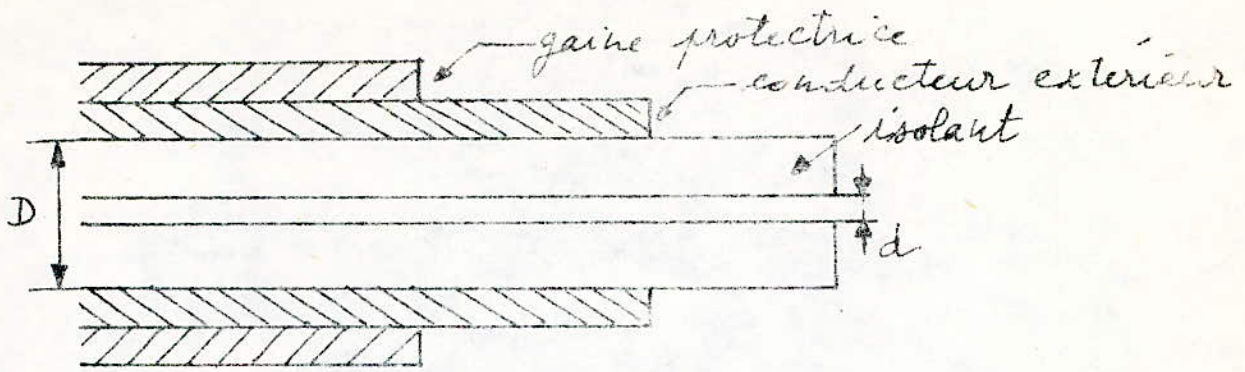 gaine protectrice
conducteur extérieur
isolant
D
d